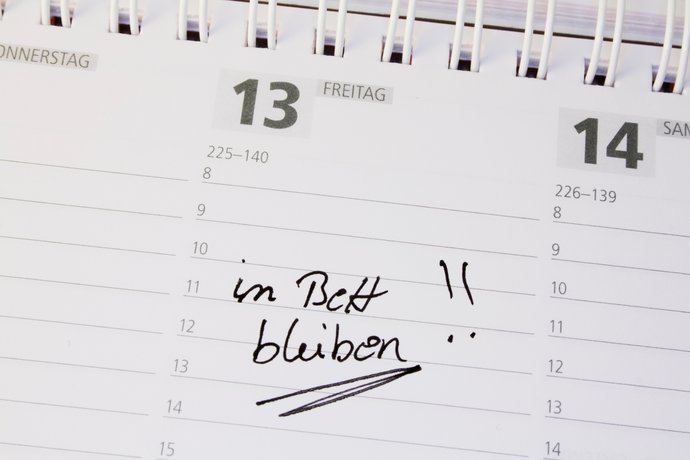 ONNERSTAG
13 FREITAG
14 SAM
225–140
226–139
8
8
9
9
10
10
in Bett !!
11
11
bleiben
12
12
13
13
14
14
15